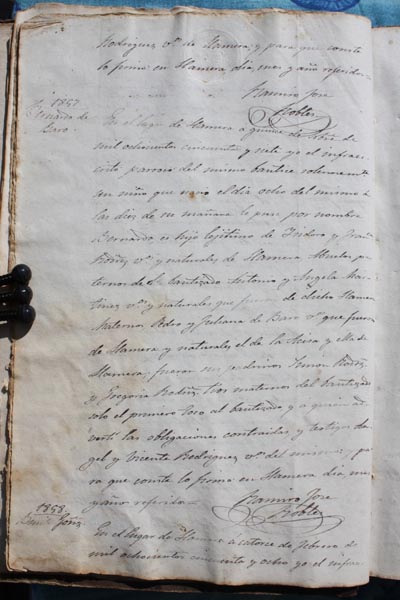 Rodriguez v.º de Llamera, y para que conste
lo firmo en Llamera dia, mes y año referidos
Ramiro Jose
Robles
1857
Bernardo de
Baro.
En el lugar de Llamera a quince de
mil ochocientos cincuenta y siete yo el infraes
cripto parroco del mismo bautice solemnemente
un niño que nacio el dia ocho del mismo a
las diez de su mañana le puse por nombre
Bernardo es hijo lejitimo de Isidoro y
Rodñz v.s y naturales de Llamera Abuelos pa
ternos del bautizado Antonio y Angela Mar
tinez v.s y naturales que fueron de dicho Llamera
Maternos Pedro y Juliana de Baro v.s que fueron
de Llamera y naturales el de la y ella de
Llamera, fueron sus padrinos Simon Rodñz
y Gregoria Rodñz tios maternos del bautizado
solo el primero toco al bautizado y a quien ad
verti las obligaciones contraidas y testigos An
gel y Vicente Rodriguez v.s del mismo y pa
ra que conste lo firmo en Llamera dia mes
y año referido
Ramiro Jose
Robles
1858
En el lugar de Llamera a catorce de febrero de
mil ochocientos cincuenta y ocho yo el infraes